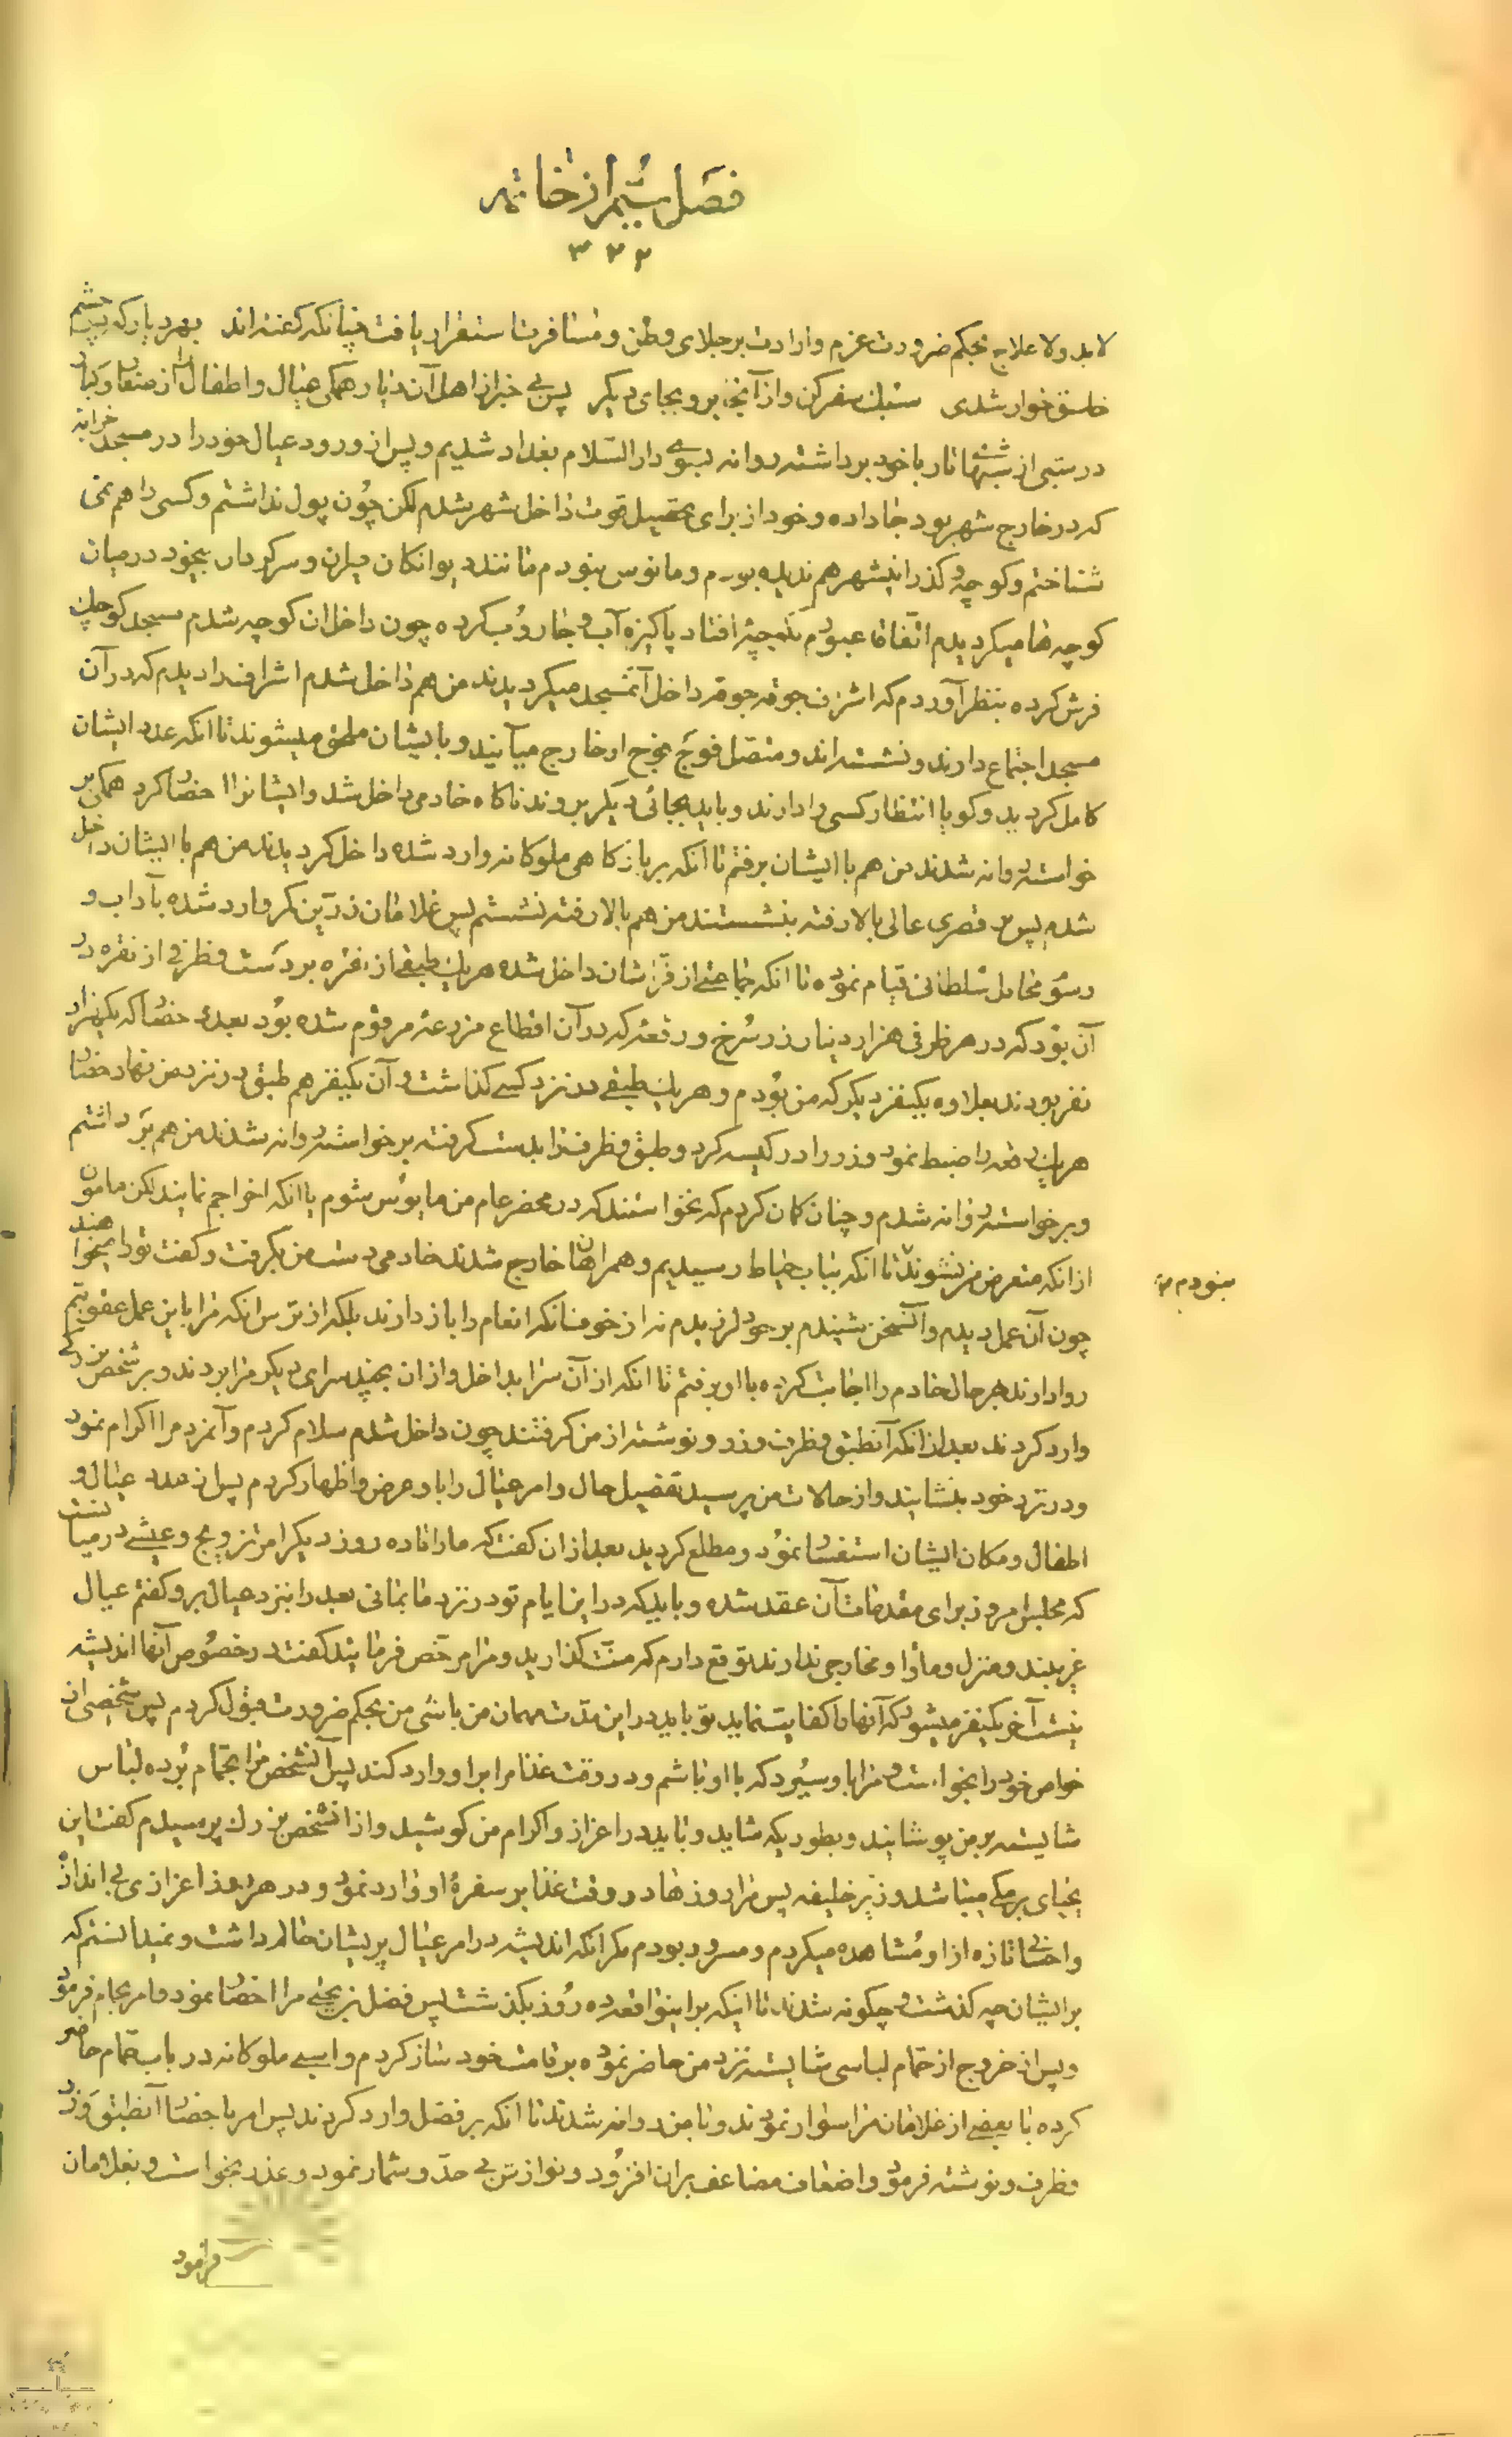 فصل ششم از خاتمه
۳۲۲
لابد و لاعلاج بحکم ضرورت عزم و ارادت بر جلای وطن و مسافرت استقرار یافت چنانکه گفته‌اند بهر دیار که در چشم
خلق خوار شدی سبک سفر کن و از آنجا برو بجای دیگر پس بی خبر از اهل آن دیار همگی عیال و اطفال را از صغار و کبار
در شبی از شبهای تار با خود برداشته روانه بسوی دار السلام بغداد شدیم و پس از ورود عیال خود را در مسجد خرابه
که در خارج شهر بود جا داده و خود از برای تحصیل قوت داخل شهر شدم لکن چون پول نداشتم و کسی را هم نمی
شناختم و کوچه و گذر اینشهر هم ندیده بودم و مانوس نبودم مانند دیوانگان حیران و سرگردان بیخود در میان
کوچه‌ها میگردیدم اتفاقا عبورم بکوچه افتاد پاکیزه آب و جاروب کرده چون داخل ان کوچه شدم مسجد کوچک
فرش کرده بنظر آوردم که اشراف جوقه جوقه داخل آنمسجد میگردیدند من هم داخل شدم اشراف را دیدم که در آن
مسجد اجتماع دارند و نشسته‌اند و متصل فوج فوج از خارج میآیند و بایشان ملحق میشوند تا انکه عدد ایشان
کامل گردید و گویا انتظار کسی را دارند و باید بجائی دیگر بروند ناگاه خادمی داخل شد و ایشانرا احضار کرد همگی بر
خواسته روانه شدند من هم با ایشان برفتم تا انکه بر بارگاهی ملوکانه وارد شده داخل گردیدند من هم با ایشان داخل
شدم پس بر قصری عالی بالا رفته بنشستند من هم بالا رفته نشستم پس غلامان زرین کمر وارد شده بآداب و
رسوم محافل سلطانی قیام نموده تا انکه جماعتی از فراشان داخل شده هر یک طبقی از نقره بر دست و ظرفی از نقره در
آن بود که در هر ظرفی هزار دینار زر سرخ و رقعه که در آن اقطاع مزرعه مرقوم شده بود بعدد حضار که یکهزار
نفر بودند بعلاوه یکنفر دیگر که من بودم و هر یک طبقی در نزد کسی گذاشت و آن یکنفر هم طبق در نزد من نهاد حضار
هر یک رقعه را ضبط نمود و زر را در کیسه کرد و طبق و ظرف را بدست گرفته برخواسته روانه شدند من هم برداشتم
و برخواسته روانه شدم و چنان گمان کردم که نخواستند که در محضر عام من مایوس شوم یا انکه اخراجم نمایند لکن مامون
از انکه متعرض من نشوند تا انکه بباب خیاط رسیدیم و همراهان خارج شدند خادمی دست من بگرفت و گفت تو را میخواهند
نبودم
چون آن عمل دیدم و آنسخن شنیدم بر خود لرزیدم نه از خوف انکه انعام را باز دارند بلکه از ترس انکه مرا باین عمل عقوبتم
روا دارند بهر حال خادم را اجابت کرده با او برفتم تا انکه از آن سرا بداخل و از ان بچند سرای دیگر مرا بردند و بر شخص بزرگی
وارد کردند بعد از انکه آنطبق و ظرف و زر و نوشته از من گرفتند چون داخل شدم سلام کردم و آنمرد مرا اکرام نمود
و در نزد خود بنشانید و از حالات من پرسید تفصیل حال و امر عیال را باو عرض و اظهار کردم پس از عدد عیال و
اطفال و مکان ایشان استفسار نمود و مطلع گردید بعد از ان گفت که ما را تا ده روز دیگر امر تزویج و عیشی در میانست
که مجلس امروز برای مقدمات آن عقد شده و باید که در این ایام تو در نزد ما بمانی بعد از ان بنزد عیال برو گفتم عیال
غریبند و منزل و مأوا و مخارجی ندارند توقع دارم که منت گذارید و مرا مرخص فرمایند گفت در خصوص آنها اندیشه
نیست آخر یکنفر میشود که آنها را کفایت نماید تو باید در این مدت مهمان من باشی من بحکم ضرورت قبول کردم پس شخصی از
خواص خود را بخواست و مرا باو سپرد که با او باشم و در وقت غذا مرا بر او وارد کند پس آنشخص مرا بحمام برده لباس
شایسته بر من پوشانید و بطوریکه شاید و باید در اعزاز و اکرام من کوشید و از انشخص بزرگ پرسیدم گفت این
یحیای برمکی میباشد وزیر خلیفه پس مرا روزها در وقت غذا بر سفرهٔ او وارد نمود و در هر روز اعزازی بی اندازه
و احسانی تازه از او مشاهده میکردم و مسرور بودم مگر انکه اندیشه در امر عیال پریشان حالم داشت و نمیدانستم که
بر ایشان چه گذشت و چگونه شدند تا اینکه بر اینواقعه ده روز بگذشت پس فضل بن یحیی مرا احضار نمود و امر بحمام فرمود
و پس از خروج از حمام لباسی شایسته نزد من حاضر نموده بر قامت خود ساز کردم و اسبی ملوکانه در باب حمام حاضر
کرده با بعضی از غلامان مرا سوار نمودند و با من روانه شدند تا انکه بر فضل وارد کردند پس امر باحضار آنطبق و زر
و ظرف و نوشته فرمود و اضعاف مضاعف بر ان افزود و نوازش بی حد و شمار نمود و عذر بخواست و بغلامان
فرمود